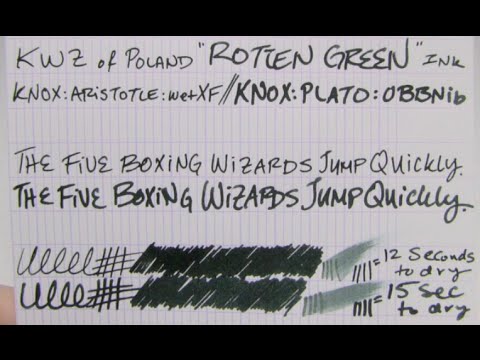 KWZ of POLAND "ROTTEN GREEN" INK
KNOX:ARISTOTLE:wetXF//KNOX:PLATO:OBBNib
THE FIVE BOXING WIZARDS JUMP QUICKLY.
THE FIVE BOXING WIZARDS JUMP QUICKLY.
= 12 Seconds to dry
= 15 sec to dry